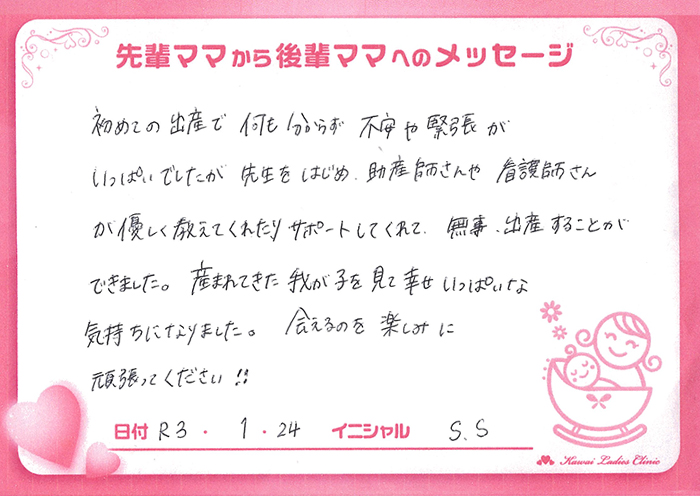 先輩ママから後輩ママへのメッセージ
初めての出産で 何も分からず 不安や緊張が
いっぱいでしたが 先生をはじめ、助産師さんや 看護師さん
が優しく教えてくれたりサポートしてくれて、無事、出産することが
できました。産まれてきた我が子を見て幸せいっぱいな
気持ちになりました。会えるのを楽しみに
頑張ってください!!
日付 R3・1・24 イニシャル S.S
Kawai Ladies Clinic